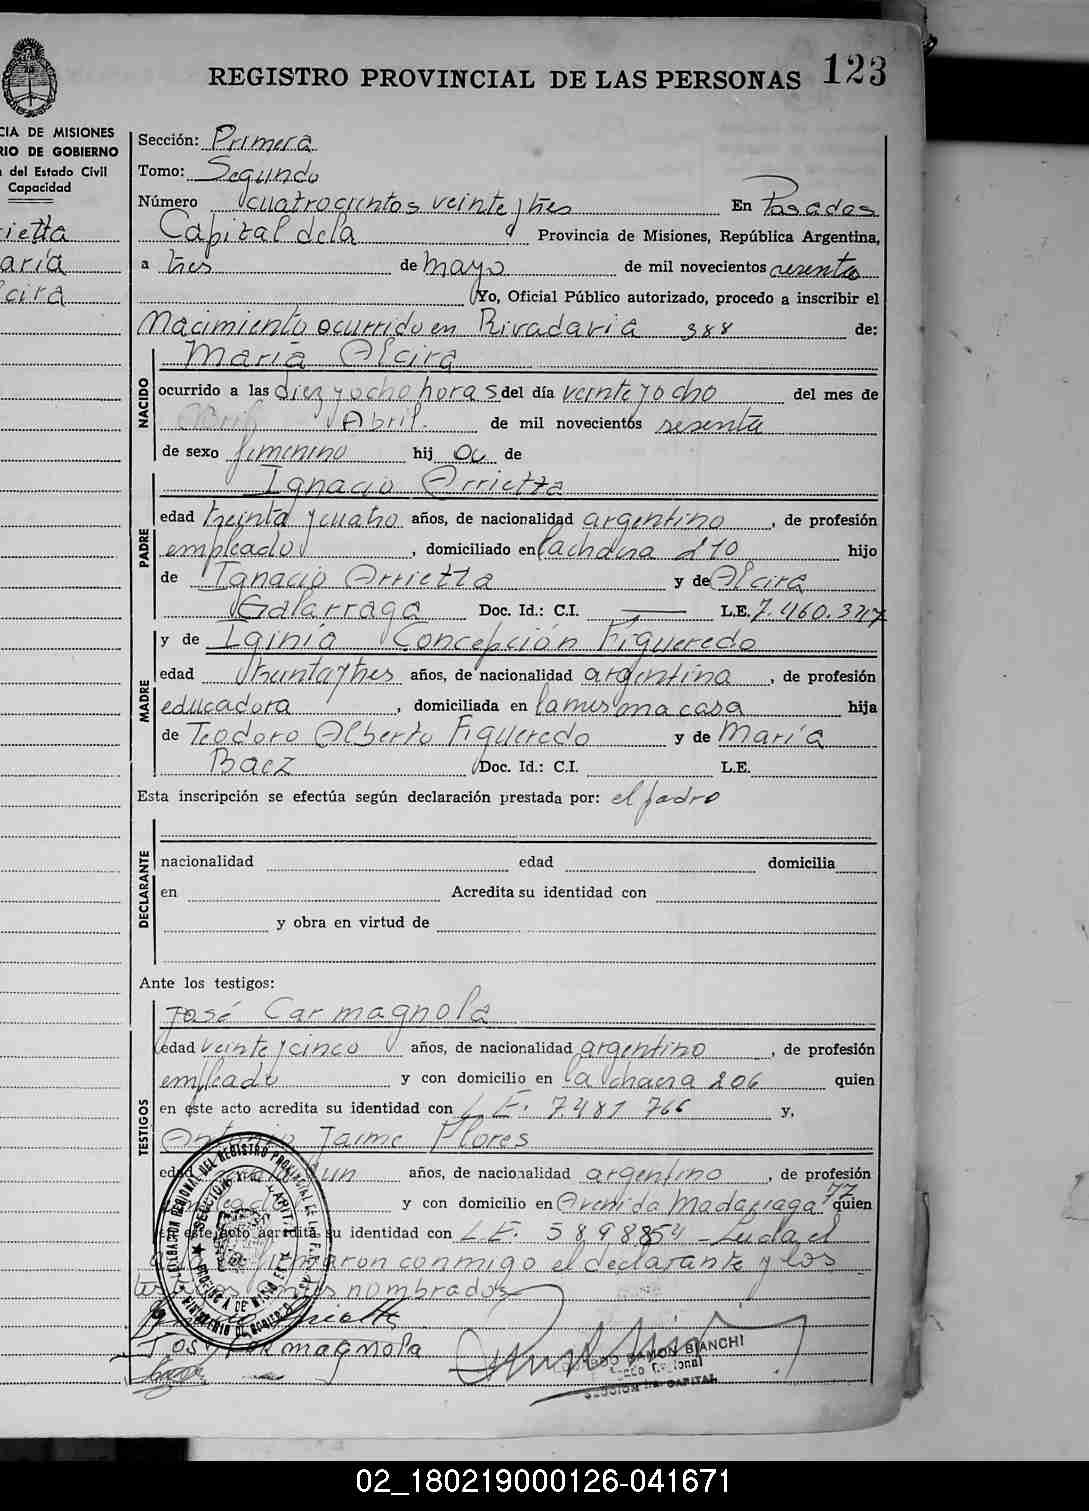 REGISTRO PROVINCIAL DE LAS PERSONAS 123
CIA DE MISIONES
RIO DE GOBIERNO
del Estado Civil
Capacidad
rietta
aría
lcira
Sección: Primera
Tomo: Segundo
Número cuatrocientos veinte y tres En Posadas
Capital dela Provincia de Misiones, República Argentina,
a tres de mayo de mil novecientos sesenta
Yo, Oficial Público autorizado, procedo a inscribir el
Nacimiento ocurrido en Rivadavia 388 de:
NACIDO
María Alcira
ocurrido a las diez y ocho horas del día veinte y ocho del mes de
Abril Abril. de mil novecientos sesenta
de sexo femenino hij a de
PADRE
Ignacio Arrietta
edad treinta y cuatro años, de nacionalidad argentino, de profesión
empleado, domiciliado en la chacra 210 hijo
de Ignacio Arrietta y de Alcira
Galarraga Doc. Id.: C.I. L.E. 7.460.347
y de Iginia Concepción Figueredo
MADRE
edad treinta y tres años, de nacionalidad argentina, de profesión
educadora, domiciliada en la misma casa hija
de Teodoro Alberto Figueredo y de María
Baez Doc. Id.: C.I. L.E.
Esta inscripción se efectúa según declaración prestada por: el padre
DECLARANTE
nacionalidad edad domicilia
en Acredita su identidad con
y obra en virtud de
Ante los testigos:
TESTIGOS
José Carmagnola
edad veinte y cinco años, de nacionalidad argentino, de profesión
empleado y con domicilio en la chacra 206 quien
en este acto acredita su identidad con L.E. 7.481 766 y,
Antonio Jaime Flores
edad y un años, de nacionalidad argentino, de profesión
y con domicilio en Avenida Madariaga 77 quien
en este acto acredita su identidad con L.E. 5898854 - Leida el
firmaron conmigo el declarante y los
testigos antes nombrados
Arrietta
José Carmagnola
RAMON BIANCHI
CAPITAL
02_180219000126-041671